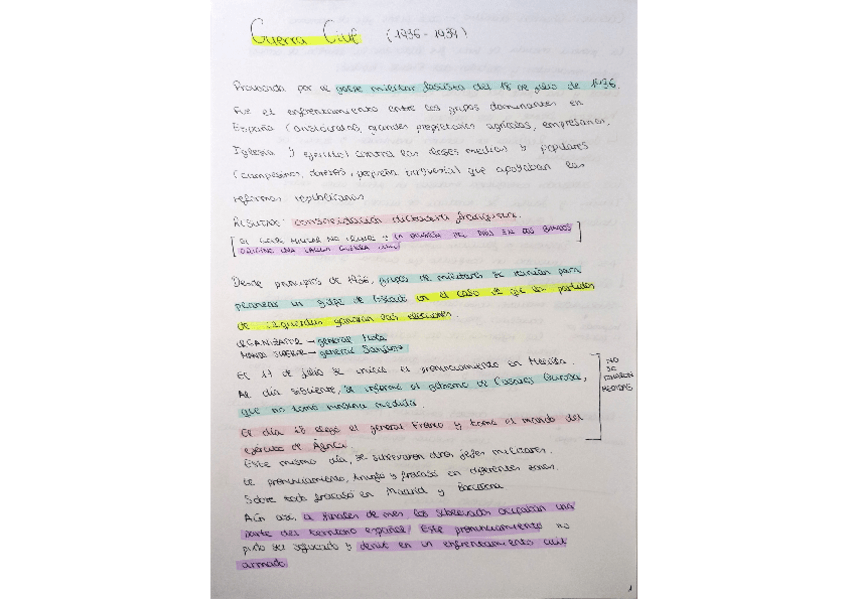 Guerra Civil (1936-1939)
Provocada por el golpe militar fascista del 18 de julio de 1936.
Fue el enfrentamiento entre los grupos dominantes en
España (aristócratas, grandes propietarios agrícolas, empresarios,
Iglesia y ejército) contra las clases medias y populares
(campesinos, obreros, pequeña burguesía) que apoyaban las
reformas republicanas
Resultado: consolidación dictadura franquista.
[EL GOLPE MILITAR NO TRIUNFÓ y LA DIVISIÓN DEL PAÍS EN DOS BANDOS
ORIGINÓ UNA LARGA GUERRA CIVIL]
Desde principios de 1936, grupos de militares se reunían para
planear un golpe de Estado en el caso de que los partidos
de izquierdas ganaran las elecciones.
ORGANIZADOR → general Mola
MANDO SUPERIOR → general Sanjurjo
El 17 de julio se inició el pronunciamiento en Melilla.
Al día siguiente, se informó al gobierno de Casares Quiroga,
que no tomó ninguna medida.
NO
SE
TOMARON
MEDIDAS
El día 18 llegó el general Franco y tomó el mando del
ejército de África.
Este mismo día, se sublevaron otros jefes militares.
El pronunciamiento, triunfó y fracasó en diferentes zonas.
Sobre todo fracasó en Madrid y Barcelona
Aún así, a finales de mes los sublevados ocupaban una
parte del territorio español. Este pronunciamiento no
pudo ser sofocado y derivó en un enfrentamiento civil
armado.
1